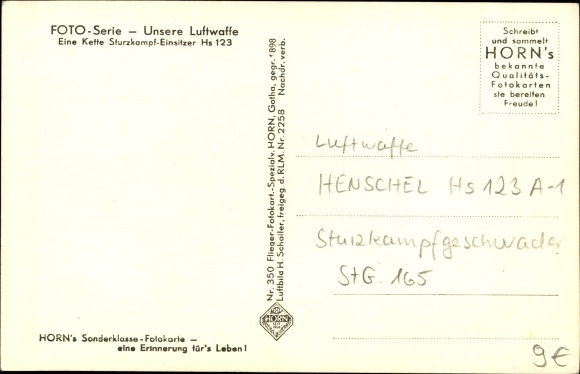 FOTO-Serie — Unsere Luftwaffe
Eine Kette Sturzkampf-Einsitzer Hs 123
Schreibt
und sammelt
HORN's
bekannte
Qualitäts-
Fotokarten
sie bereiten
Freude!
Nr. 350 Flieger-Fotokart.-Spezialv. HORN, Gotha, gegr. 1898
Luftbild H. Schaller, freigeg d. RLM. Nr. 2258 Nachdr. verb.
HORN
Luftwaffe
HENSCHEL Hs 123 A-1
Sturzkampfgeschwader
StG. 165
HORN's Sonderklasse-Fotokarte —
eine Erinnerung für's Leben!
9€